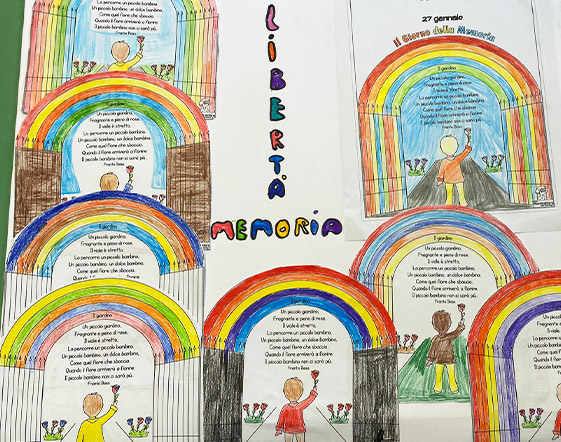 Un piccolo bambino, un dolce bambino,
Come quel fiore che sboccia.
Quando il fiore arriverà a fiorire
Il piccolo bambino non ci sarà più.
Frantis Bass
LIBERTÀ
MEMORIA
27 gennaio
Il Giorno della Memoria
Il giardino
Un piccolo giardino,
Fragrante e pieno di rose.
Il viale è stretto,
Lo percorre un bambino.
Un piccolo bambino, un dolce bambino,
Come quel fiore che sboccia.
Quando il fiore arriverà a fiorire
Il piccolo bambino non ci sarà più.
Frantis Bass
Il giardino
Un piccolo giardino,
Fragrante e pieno di rose.
Il viale è stretto,
Lo percorre un bambino.
Un piccolo bambino, un dolce bambino,
Come quel fiore che sboccia.
Quando il fiore arriverà a fiorire
Il piccolo bambino non ci sarà più.
Frantis Bass
Il giardino
Un piccolo giardino,
Fragrante e pieno di rose.
Il viale è stretto,
Lo percorre un bambino.
Un piccolo bambino, un dolce bambino,
Come quel fiore che sboccia.
Il giardino
Un piccolo giardino,
Fragrante e pieno di rose.
Il viale è stretto,
Lo percorre un bambino.
Un piccolo bambino, un dolce bambino,
Come quel fiore che sboccia.
Quando il fiore arriverà a fiorire
Il piccolo bambino non ci sarà più.
Frantis Bass
Il giardino
Un piccolo giardino,
Fragrante e pieno di rose.
Il viale è stretto,
Lo percorre un bambino.
Un piccolo bambino, un dolce bambino,
Come quel fiore che sboccia.
Quando il fiore arriverà a fiorire
Il piccolo bambino non ci sarà più.
Frantis Bass
Il giardino
Un piccolo giardino,
Fragrante e pieno di rose.
Il viale è stretto,
Lo percorre un bambino.
Un piccolo bambino, un dolce bambino,
Come quel fiore che sboccia.
Quando il fiore arriverà a fiorire
Il piccolo bambino non ci sarà più.
Frantis Bass
Un piccolo
Fragrante e
Il viale
Lo percorre
Un piccolo bambino
Come quel
Quando il fiore
Il piccolo bambino